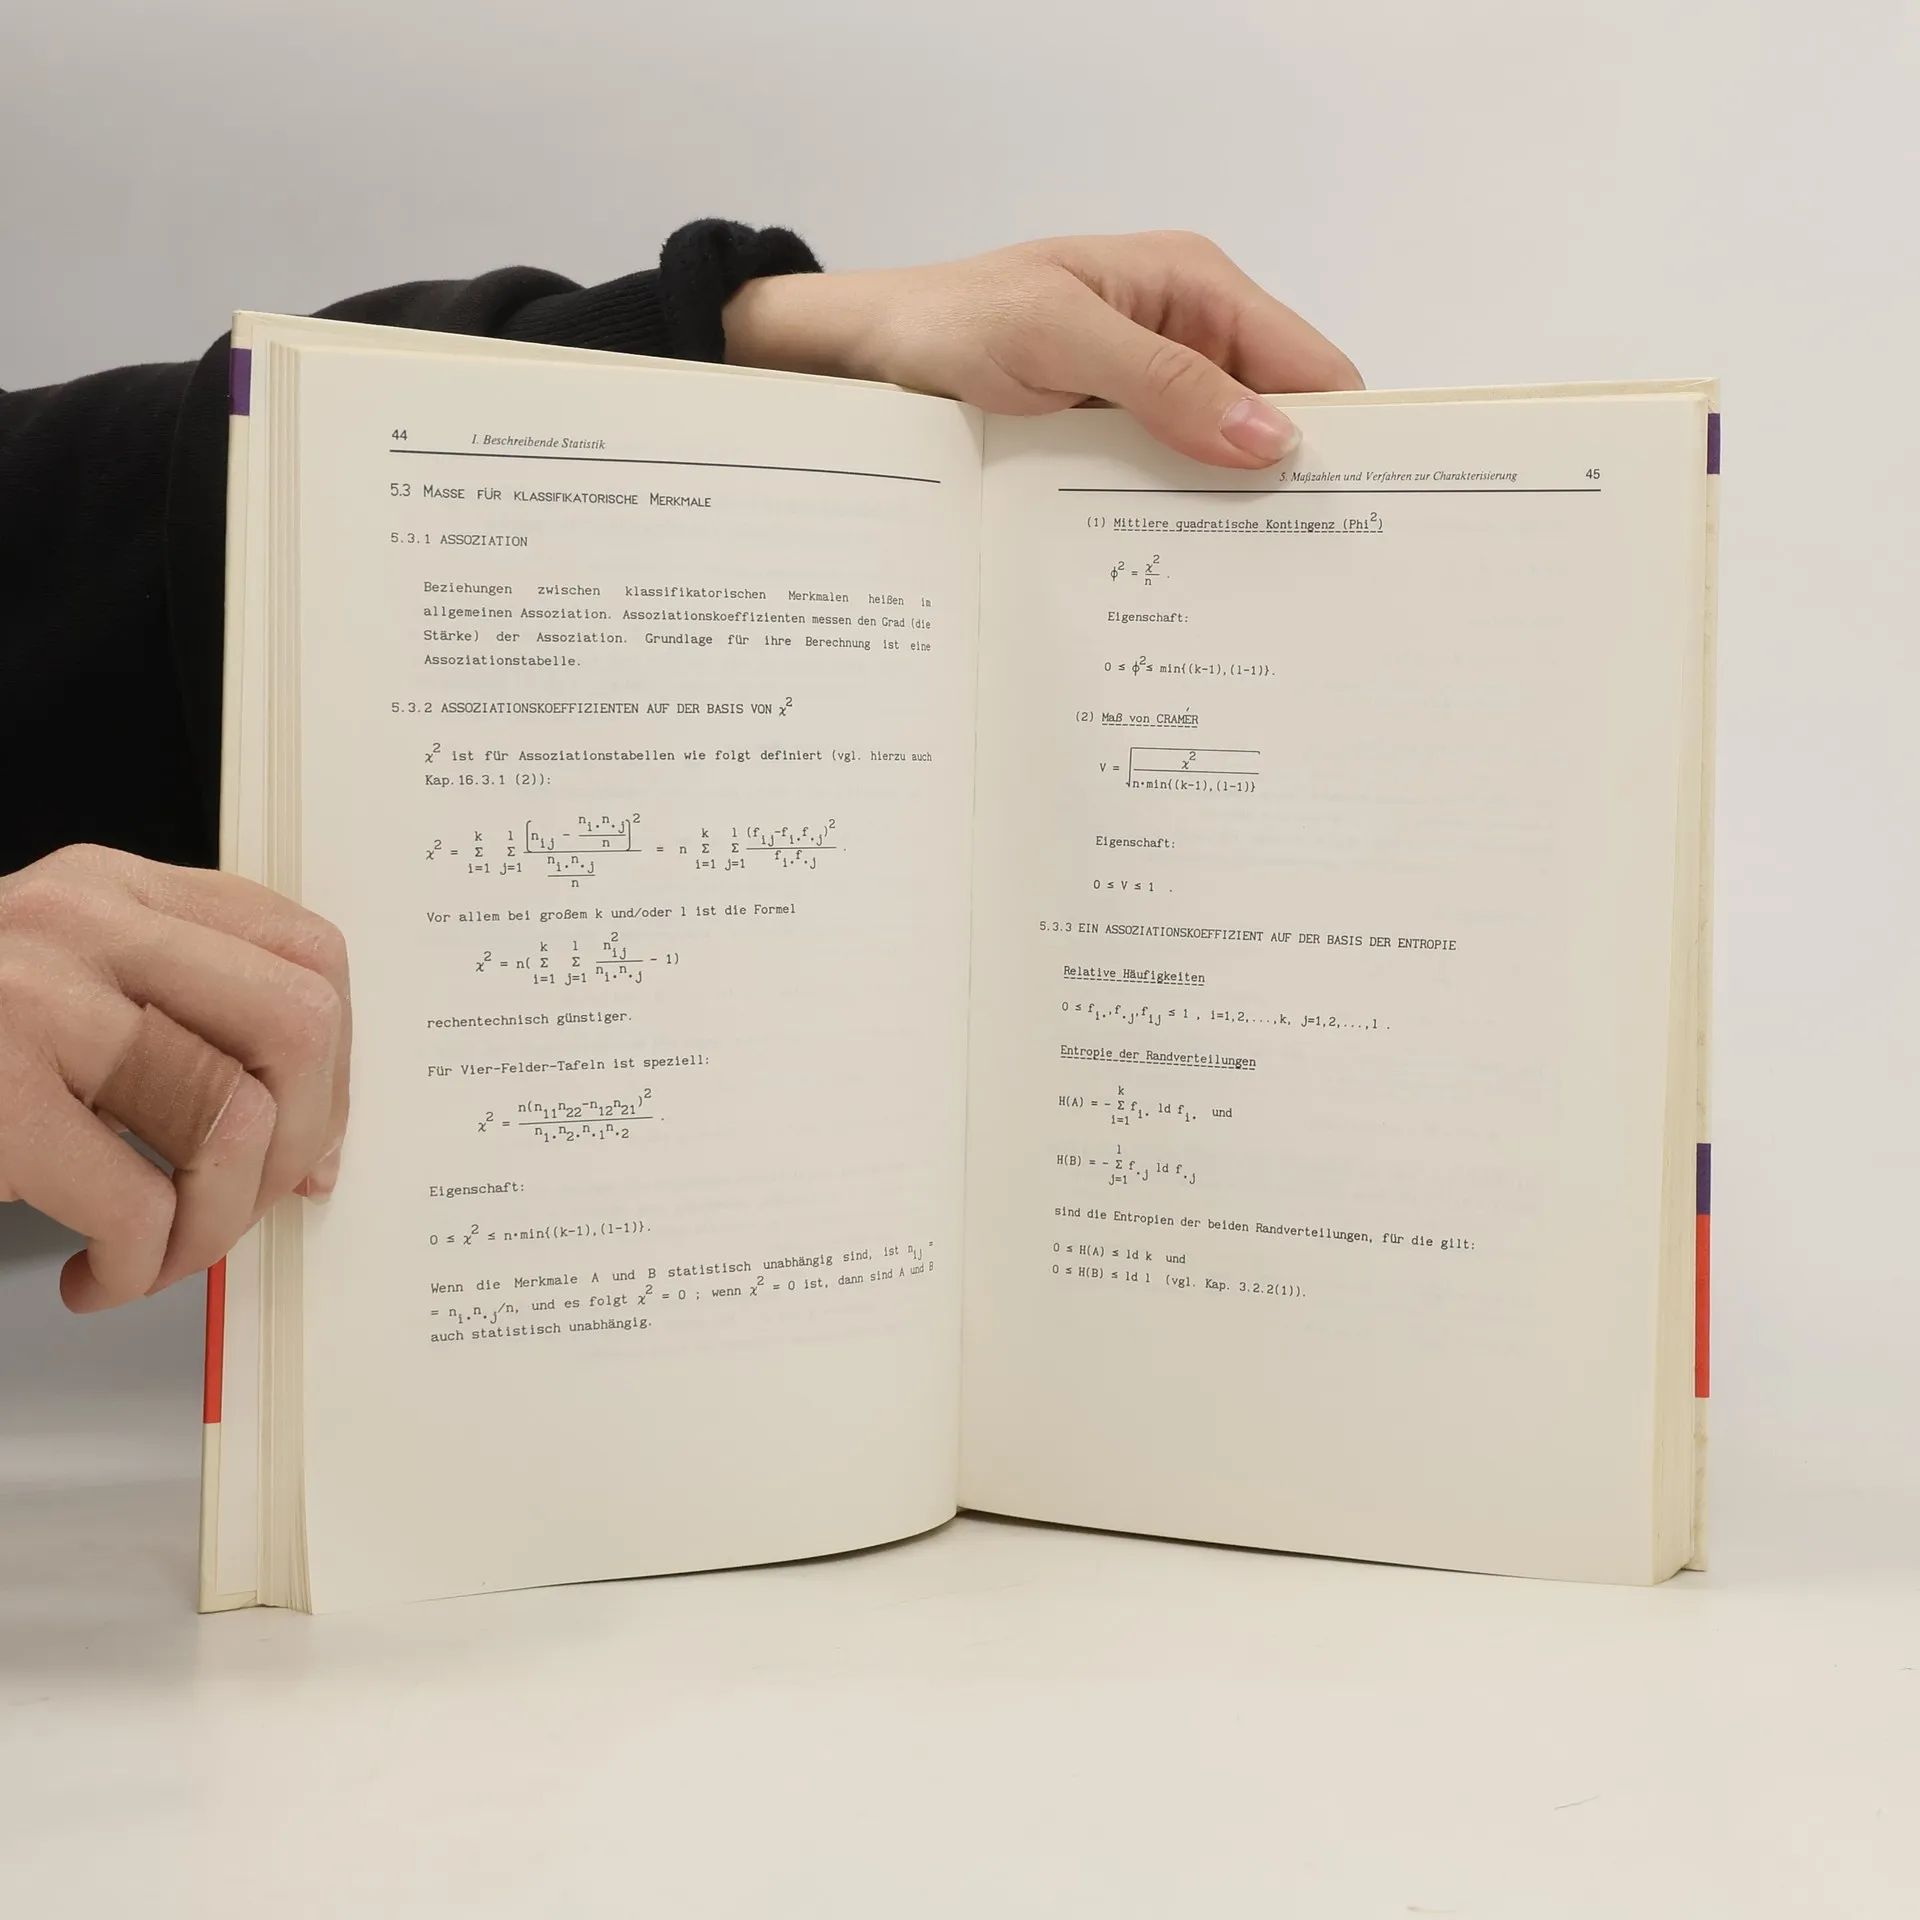 44 I. Beschreibende Statistik
5.3 MASSE FÜR KLASSIFIKATORISCHE MERKMALE
5.3.1 ASSOZIATION
Beziehungen zwischen klassifikatorischen Merkmalen heißen im
allgemeinen Assoziation. Assoziationskoeffizienten messen den Grad (die
Stärke) der Assoziation. Grundlage für ihre Berechnung ist eine
Assoziationstabelle.
5.3.2 ASSOZIATIONSKOEFFIZIENTEN AUF DER BASIS VON χ²
χ² ist für Assoziationstabellen wie folgt definiert (vgl. hierzu auch
Kap.16.3.1 (2)):
χ² = Σ_{i=1}^{k} Σ_{j=1}^{l} [n_{ij} - n_{i.}n_{.j}/n]² / (n_{i.}n_{.j}/n) = n Σ_{i=1}^{k} Σ_{j=1}^{l} (f_{ij}-f_{i.}f_{.j})² / (f_{i.}f_{.j}) .
Vor allem bei großem k und/oder l ist die Formel
χ² = n( Σ_{i=1}^{k} Σ_{j=1}^{l} n_{ij}² / (n_{i.}n_{.j}) - 1)
rechentechnisch günstiger.
Für Vier-Felder-Tafeln ist speziell:
χ² = n(n₁₁n₂₂-n₁₂n₂₁)² / (n_{1.}n_{2.}n_{.1}n_{.2}) .
Eigenschaft:
0 ≤ χ² ≤ n·min{(k-1),(l-1)}.
Wenn die Merkmale A und B statistisch unabhängig sind, ist n_{ij} =
= n_{i.}n_{.j}/n, und es folgt χ² = 0 ; wenn χ² = 0 ist, dann sind A und B
auch statistisch unabhängig.
5. Maßzahlen und Verfahren zur Charakterisierung 45
(1) Mittlere quadratische Kontingenz (Phi²)
ϕ² = χ²/n .
Eigenschaft:
0 ≤ ϕ² ≤ min{(k-1),(l-1)}.
(2) Maß von CRAMÉR
V = √(χ² / (n·min{(k-1),(l-1)}))
Eigenschaft:
0 ≤ V ≤ 1 .
5.3.3 EIN ASSOZIATIONSKOEFFIZIENT AUF DER BASIS DER ENTROPIE
Relative Häufigkeiten
0 ≤ f_{i.},f_{.j},f_{ij} ≤ 1 , i=1,2,...,k, j=1,2,...,l .
Entropie der Randverteilungen
H(A) = - Σ_{i=1}^{k} f_{i.} ld f_{i.} und
H(B) = - Σ_{j=1}^{l} f_{.j} ld f_{.j}
sind die Entropien der beiden Randverteilungen, für die gilt:
0 ≤ H(A) ≤ ld k und
0 ≤ H(B) ≤ ld l (vgl. Kap. 3.2.2(1)).